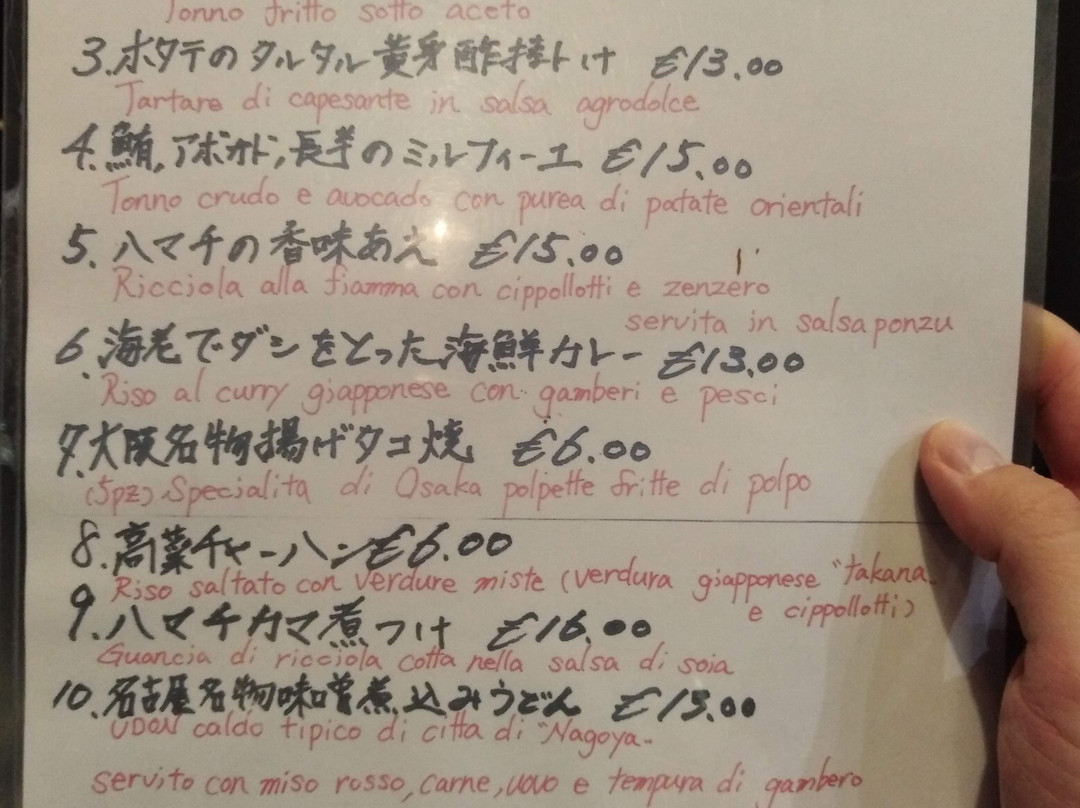 Tonno fritto sotto aceto
3.ホタテのタルタル黄身酢掛け €13.00
Tartare di capesante in salsa agrodolce
4.鮪,アボカド,長芋のミルフィーユ €15.00
Tonno crudo e avocado con purea di patate orientali
5.ハマチの香味あえ €15.00
Ricciola alla fiamma con cippollotti e zenzero
servita in salsa ponzu
6.海老でダシをとった海鮮カレー €13.00
Riso al curry giapponese con gamberi e pesci
7.大阪名物揚げタコ焼 €6.00
(5pz) Specialita di Osaka polpette fritte di polpo
8.高菜チャーハン €6.00
Riso saltato con verdure miste (verdura giapponese "takana
e cippollotti)
9.ハマチカマ煮つけ €16.00
Guancia di ricciola cotta nella salsa di soia
10.名古屋名物味噌煮込みうどん €13.00
UDON caldo tipico di citta di "Nagoya"
servito con miso rosso, carne, uovo e tempura di gambero